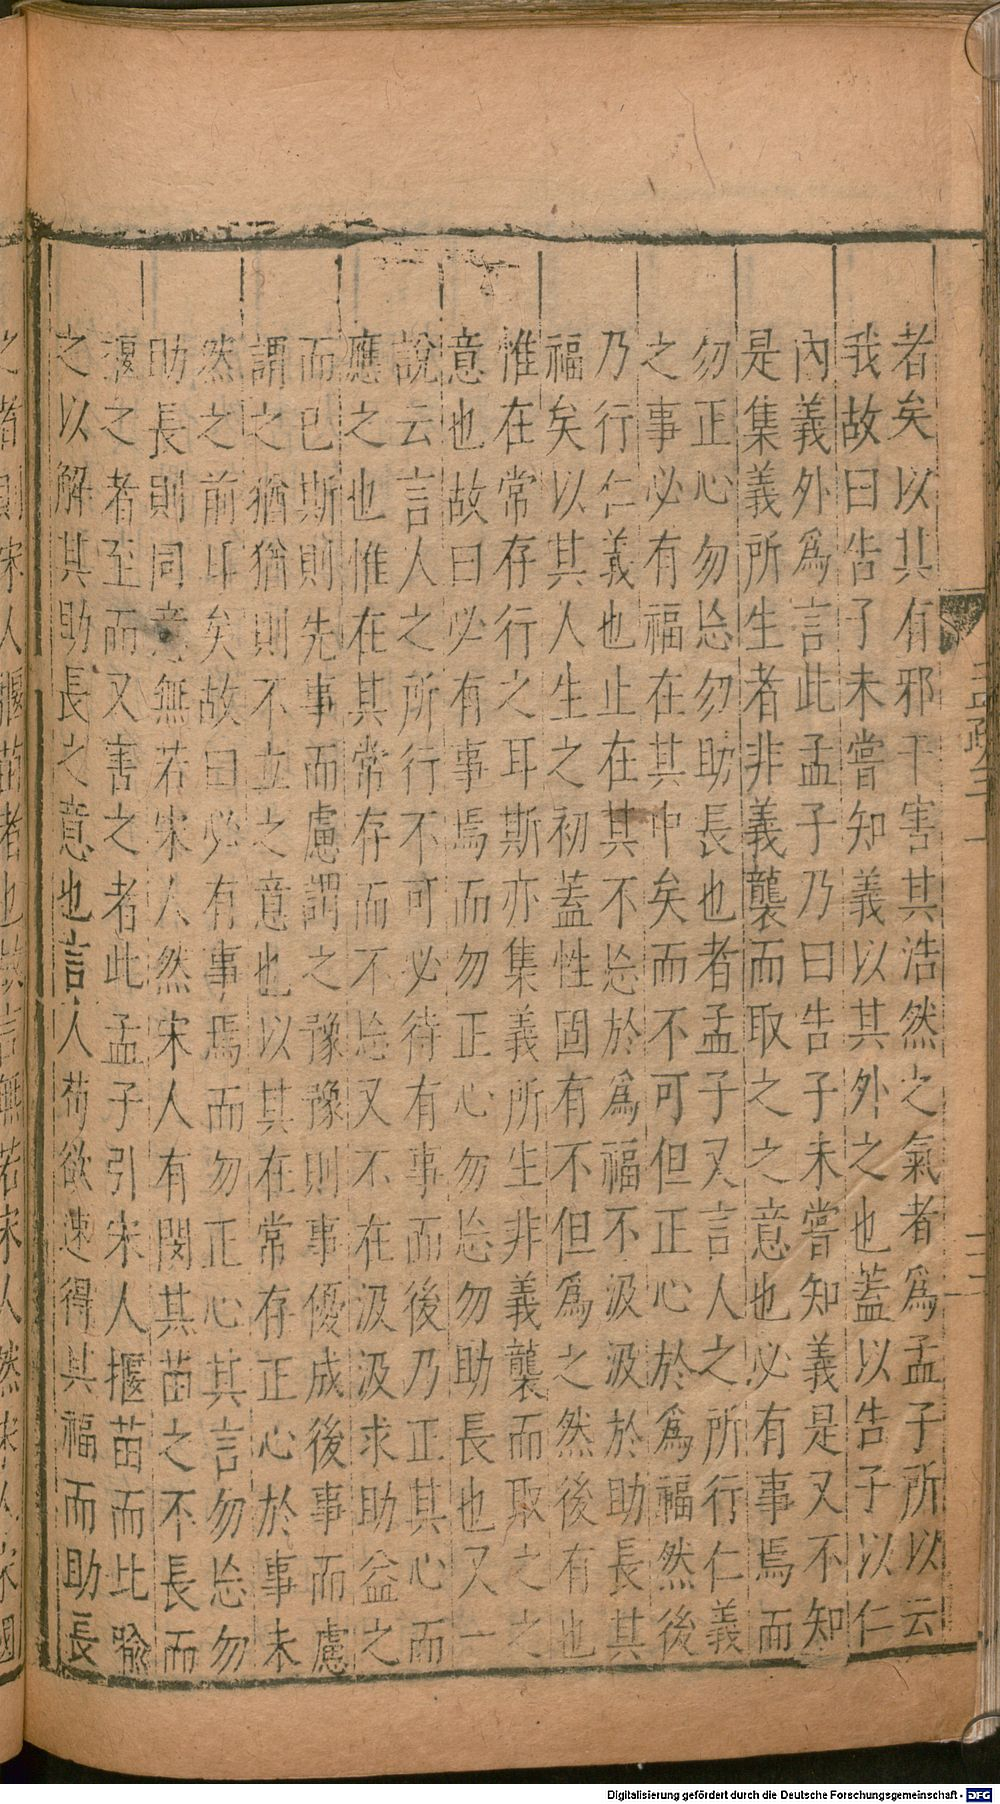 者矣以其有邪干害其浩然之氣者爲孟子所以云
我故曰告子未嘗知義以其外之也蓋以告子以仁
內義外爲言此孟子乃曰告子未嘗知義是又不知
是集義所生者非義襲而取之之意也必有事焉而
勿正心勿忘勿助長也者孟子又言人之所行仁義
之事必有福在其中矣而不可但正心於爲福然後
乃行仁義也止在其不忘於爲福不汲汲於助長其
福矣以其人生之初蓋性固有不但爲之然後有也
惟在常存行之耳斯亦集義所生非義襲而取之之
意也故曰必有事焉而勿正心勿忘勿助長也又一
說云言人之所行不可必待有事而後乃正其心而
應之也惟在其常存而不忘又不在汲汲求助益之
而已斯則先事而慮謂之豫豫則事優成後事而慮
謂之猶猶則不立之意也以其在常存正心於事未
然之前耳矣故曰必有事焉而勿正心其言勿忘勿
助長則同意無若宋人然宋人有閔其苗之不長而
揠之者至而又害之者此孟子引宋人揠苗而比喻
之以解其助長之意也言人苟欲速得其福而助長
之者則宋人揠苗者也故言無若宋人然宋人宋國
Digitalisierung gefördert durch die Deutsche Forschungsgemeinschaft - DFG